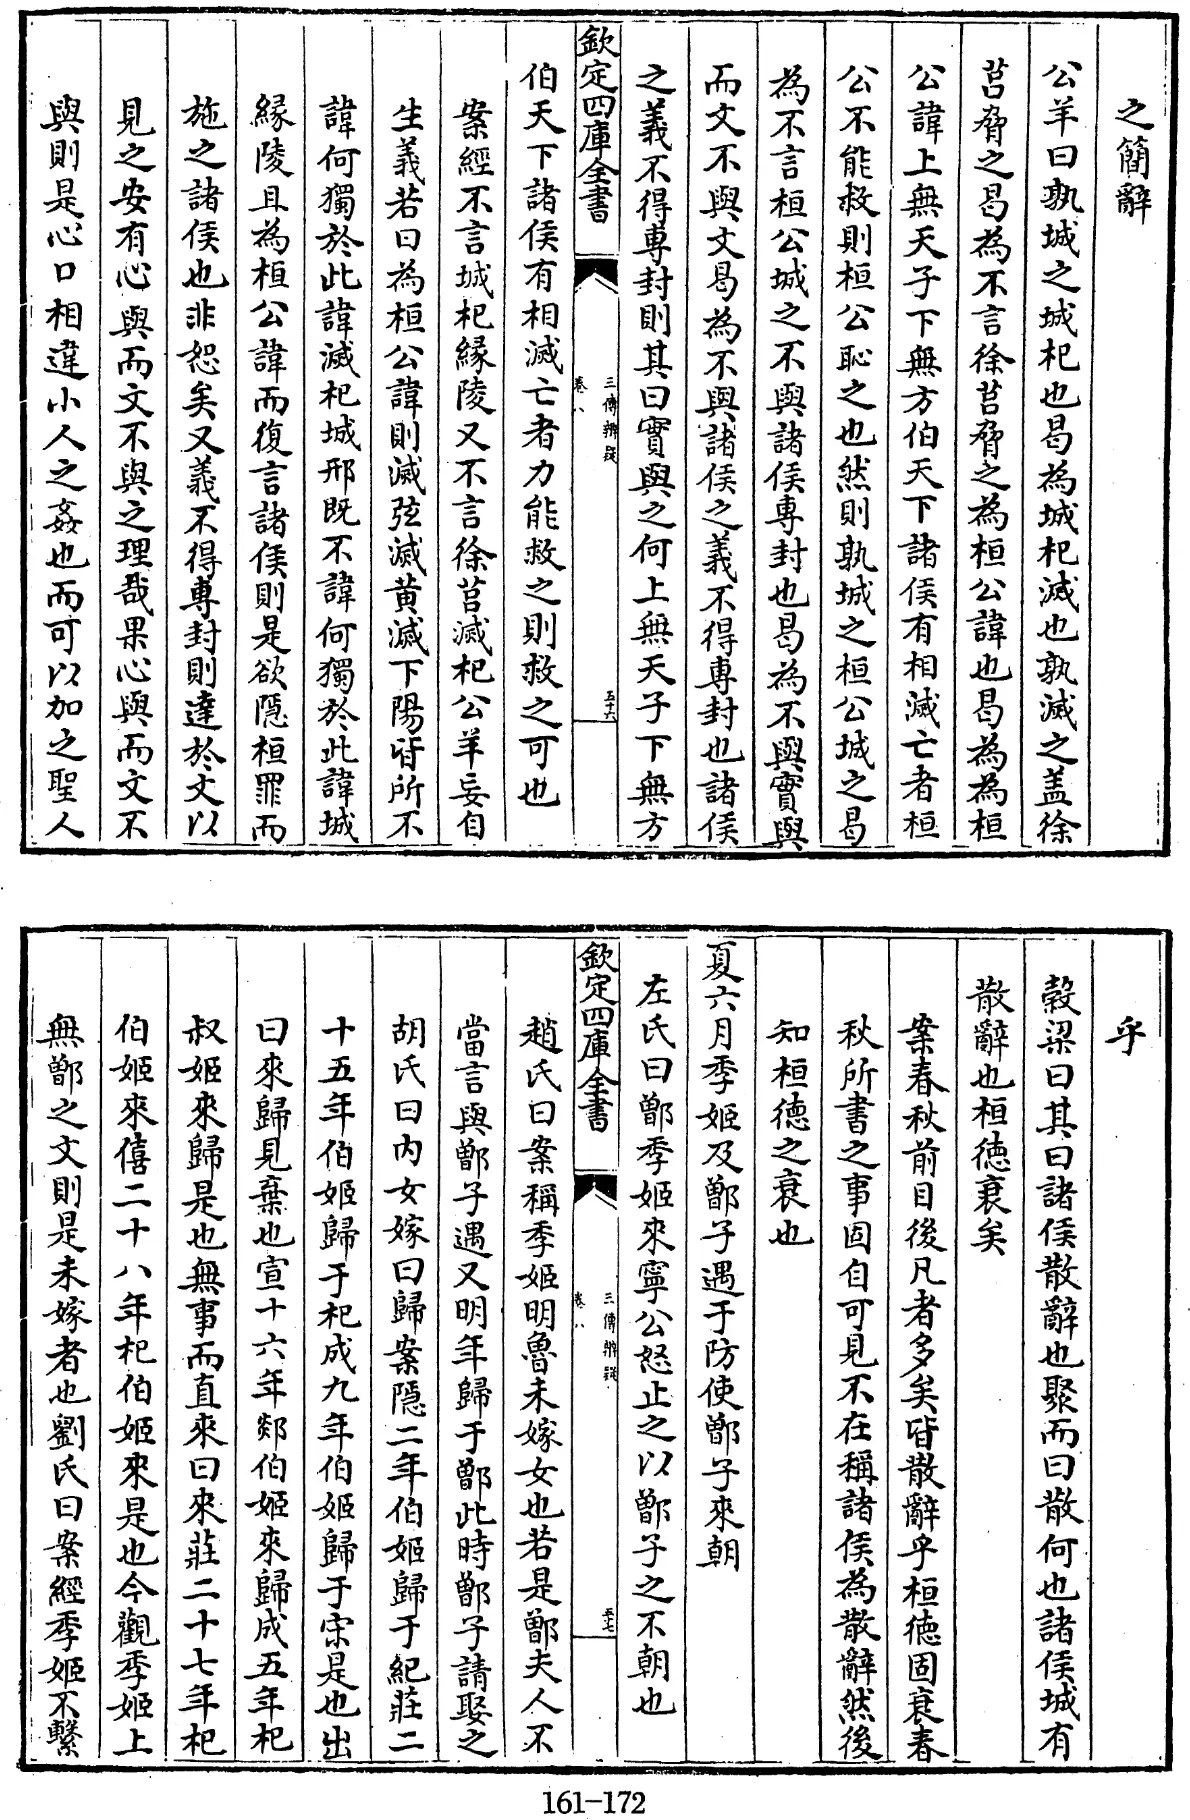 之簡辭
公羊曰孰城之城杞也曷為城杞滅也孰滅之盖徐
莒脅之曷為不言徐莒脅之為桓公諱也曷為為桓
公諱上無天子下無方伯天下諸侯有相滅亡者桓
公不能救則桓公恥之也然則孰城之桓公城之曷
為不言桓公城之不與諸侯專封也曷為不與實與
而文不與文曷為不與諸侯之義不得專封也諸侯
之義不得專封則其曰實與之何上無天子下無方
欽定四庫全書
三傳辨疑
卷八
五十六
伯天下諸侯有相滅亡者力能救之則救之可也
案經不言城杞緣陵又不言徐莒滅杞公羊妄自
生義若曰為桓公諱則滅弦滅黃滅下陽皆所不
諱何獨於此諱滅杞城邢既不諱何獨於此諱城
緣陵且為桓公諱而復言諸侯則是欲隱桓罪而
施之諸侯也非恕矣又義不得專封則達於文以
見之安有心與而文不與之理哉果心與而文不
與則是心口相違小人之姦也而可以加之聖人
乎
穀梁曰其曰諸侯散辭也聚而曰散何也諸侯城有
散辭也桓德衰矣
案春秋前目後凡者多矣皆散辭乎桓德固衰春
秋所書之事固自可見不在稱諸侯為散辭然後
知桓德之衰也
夏六月季姬及鄫子遇于防使鄫子來朝
左氏曰鄫季姬來寧公怒止之以鄫子之不朝也
欽定四庫全書
三傳辨疑
卷八
五十七
趙氏曰案稱季姬明魯未嫁女也若是鄫夫人不
當言與鄫子遇又明年歸于鄫此時鄫子請娶之
胡氏曰內女嫁曰歸案隱二年伯姬歸于紀莊二
十五年伯姬歸于杞成九年伯姬歸于宋是也出
曰來歸見棄也宣十六年郯伯姬來歸成五年杞
叔姬來歸是也無事而直來曰來莊二十七年杞
伯姬來僖二十八年杞伯姬來是也今觀季姬上
無鄫之文則是未嫁者也劉氏曰案經季姬不繫
161-172